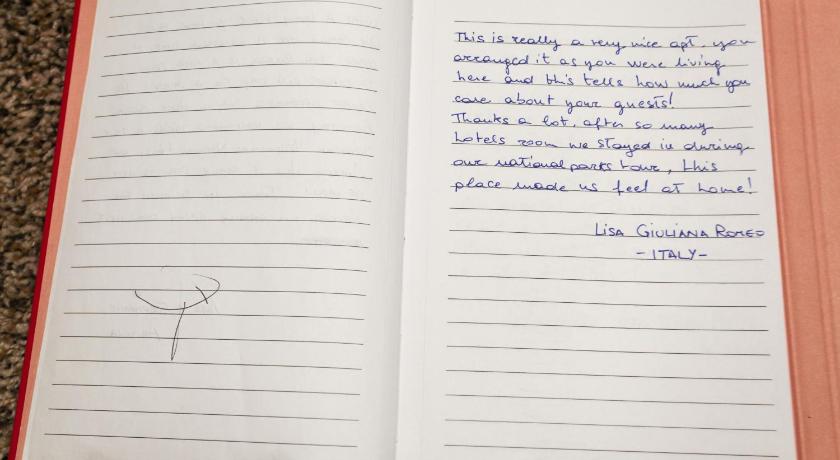 This is really a very nice apt, you
arranged it as you were living
here and this tells how much you
care about your guests!
Thanks a lot, after so many
hotels room we stayed in during
our national parks tour, this
place made us feel at home!
LISA GIULIANA ROMEO
-ITALY-